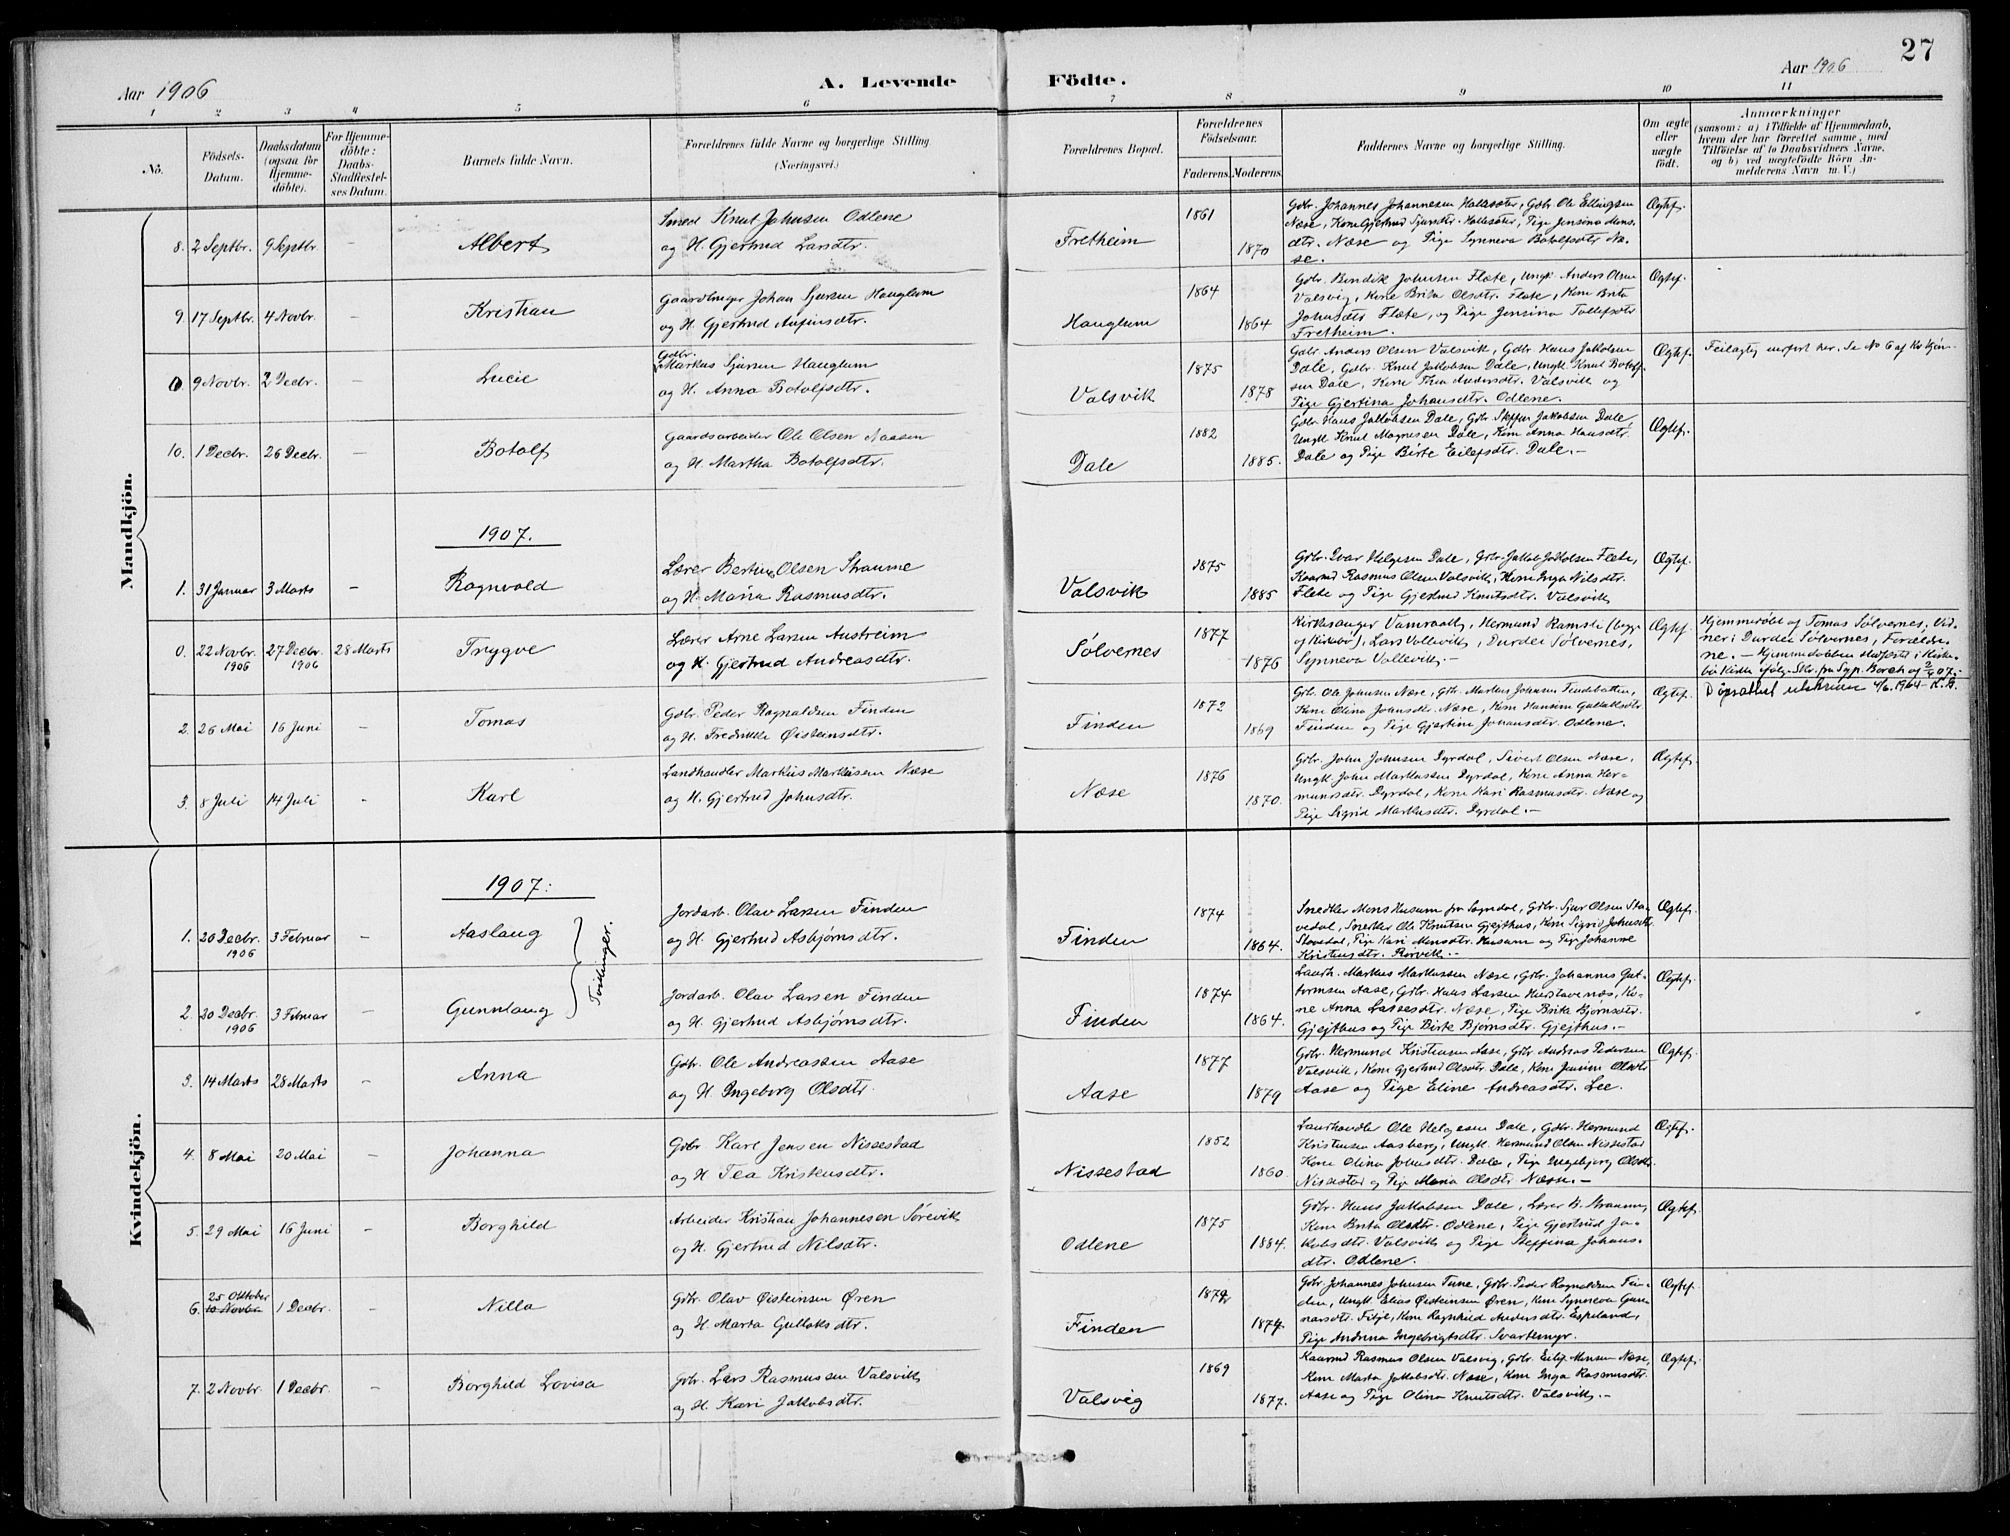 27
Aar 1906
A. Levende Födte.
Aar 1906
1 2 3 4 5 6 7 8 9 10 11
No.
Födsels-Datum.
Daabsdatum (ogsaa for Hjemmedöbte).
For Hjemmedöbte: Daabs-Stadfæstelses Datum.
Barnets fulde Navn.
Forældrenes fulde Navne og borgerlige Stilling (Næringsvei.)
Forældrenes Bopæl.
Forældrenes Födselsaar.
Faderens. Moderens.
Faddernes Navne og borgerlige Stilling.
Om ægte eller uægte födt.
Anmærkninger
(saasom: a) i Tilfælde af Hjemmedaab, hvem der har forrettet samme, med Tilföielse af to Daabsvidners Navne, og b) ved uægtefödte Börn Anmelderens Navn m. V.)
Mandkjön.
8. 2 Septbr. 9 Septbr. - Albert
Smed Knut Johnsen Odlene
og H. Gjertrud Larsdtr.
Fretheim 1861 1870
Gdbr. Johannes Johannesen Hallesøter, Gdbr Ole Ellingsen
Næse, Kone Gjertrud Sjursdtr. Hallesøter, Pige Jensine Hans-
dtr. Næse og Pige Synneva Botolfsdtr Næ-
se.
Ægtef.
9. 17 Septbr. 4 Novbr. - Kristian
Gaardbruger Johan Sjursen Hauglum
og H. Gjertrud Anfinsdtr.
Hauglum 1864 1864
Gbr. Bendik Johnsen Flæte, Ungk. Anders Olsen
Valsvig, Kone Brita Olsdtr. Flæte, Kone Brita
Johnsdtr Flæte, og Pige Jensina Tollefsdtr
Fretheim.
Ægtef.
0 9 Novbr. 2 Decbr. - Lucie
Gdbr. Markus Sjursen Hauglum
og H. Anna Botolfsdtr.
Valsvik 1875 1878
Gdbr. Anders Olsen Valsvik, Gdbr Hans Jakobsen
Dale, Gdbr. Knut Jakobsen Dale, Ungk Knut Botolf-
sen Dale, Kone Thea Andersdtr. Valsvik og
Pige Gjertina Johansdtr. Odlene.
Ægtef.
Feilagtig anført her. Se No 6 af Kvkjøn-
10. 1 Decbr. 26 Decbr. - Botolf
Gaardsarbeider Ole Olsen Naasen
og H. Martha Botolfsdtr.
Dale 1882 1885.
Gdbr Hans Jakobsen Dale, Gbr. Steffen Jakobsen Dale
Ungk Knut Magnesen Dale, Kone Anna Hansdtr.
Dale og Pige Birte Eilefsdtr. Dale.-
Ægtef.
1907.
1. 31 Januar 3 Marts - Ragnvald
Lærer Bertius Olsen Straume
og H. Maria Rasmusdtr.
Valsvik 1875 1885
Gdbr. Ivar Helgesen Dale, Gdbr. Jakob Jakobsen Flete,
Kaarmd Rasmus Olsen Valsvik, Kone Inga Nilsdtr.
Flete og Pige Gjertrud Knutsdtr. Valsvik
Ægtef.
0. 22 Novbr. 1906 27 Decbr. 1906 28 Marts Trygve
Lærer Arne Larsen Austreim
og H. Gjertrud Andreasdtr.
Sølvernes 1877 1876
Kirkesanger Vamraak, Hermund Ramsli (begge
og Kirkebø), Lars Vallevik, Durdei Sølvernes,
Synneva Vallevik.-
Ægtef.
Hjemmedøbt og Tomas Sølvernes, Vid-
ner: Durdei Sølvernes, Forældre-
ne. - Hjemmedåben stadfæstet i Kirke-
bø Kirke ifølge Skr. fra Sgp. Borch
Døpsattest utskreven 4/6.1964 K.A.
2. 26 Mai 16 Juni - Tomas
Gdbr. Peder Ragnaldsen Finden
og H. Fredrikke Øisteinsdtr.
Finden 1872 1869
Gbr. Ole Johnsen Næse, Gbr. Markus Johnsen Findebotten,
Kone Olina Johansdtr. Næse, Kone Hansine Gullaksdtr.
Finden og Pige Gjertine Johansdtr. Odlene.
Ægtef.
3. 8 Juli 14 Juli - Karl
Landhandler Markus Markusen Næse
og H. Gjertrud Johnsdtr.
Næse 1876 1870.
Gdbr. John Johnsen Dyrdal, Sivert Olsen Næse,
Ungk. John Markussen Dyrdal, Kone Anna Her-
mundsdtr. Dyrdal, Kone Kari Rasmusdtr. Næse og
Pige Sigrid Markusdtr. Dyrdal.-
Ægtef.
Kvindekjön.
1907.
1. 20 Decbr. 1906 3 Februar - Aaslaug
Tvillinger.
Jordarb. Olav Larsen Finden
og H. Gjertrud Asbjørnsdtr.
Finden 1874 1864.
Snedker Mons Husum fra Sogndal, Gdbr. Sjur Olsen Sta-
vedal, Snedker Ole Knutsen Gjejthus, Kone Sigrid Johnsdtr.
Stavedal, Pige Kari Monsdtr. Husum og Pige Johanne
Kristensdtr. Rørvik.-
Ægtef.
2. 20 Decbr. 1906 3 Februar - Gunnlaug
Jordarb. Olav Larsen Finden
og H. Gjertrud Asbjørnsdtr.
Finden 1874 1864.
Landh. Markus Markussen Næse, Gdbr. Johannes Gut-
tormsen Aase, Gdbr. Hans Larsen Kurstavenæs, Ko-
ne Anna Lassesdtr. Næse, Pige Brita Bjørnsdtr.
Gjejthus og Pige Birte Bjørnsdtr. Gjejthus.-
Ægtef.
3. 14 Marts 28 Marts - Anna
Gdbr. Ole Andreassen Aase
og H. Ingeborg Olsdtr.
Aase 1877 1879
Gdbr. Hermund Kristensen Aase, Gdbr Andreas Pedersen
Valsvik, Kone Gjertrud Olsdtr. Dale, Kone Jensine Olsdtr
Aase og Pige Eline Andreasdtr. Lee.
Ægtef.
4. 8 Mai 20 Mai - Johanna
Gdbr Karl Jensen Nissestad
og H. Tea Kristensdtr.
Nissestad 1852 1860.
Landhandler Ole Helgesen Dale, Gdbr. Hermund
Kristensen Aasberg, Ungk. Hermund Olsen Nissestad
Kone Olina Johnsdtr. Dale, Pige Ingebjørg Olsdtr.
Nissestad og Pige Maria Olsdtr. Næse.-
Ægtef.
5. 29 Mai 16 Juni - Borghild
Arbeider Kristian Johannesen Sørevik
og H. Gjertrud Nilsdtr.
Odlene 1875 1884.
Gdbr. Hans Jakobsen Dale, Lærer B. Straume,
Kone Brita Olsdtr. Odlene, Pige Gjertrud Ja-
kobsdtr. Valsvik og Pige Steffina Johans-
dtr. Odlene.
Ægtef.
6. 25 Oktober 10 Novbr 1 Decbr. - Nilla
Gdbr. Olav Øisteinsen Øren
og H. Marta Gullaksdtr.
Finden 1872 1874.
Gdbr. Johannes Johnsen Tune, Gdbr. Peder Ragnaldsen Fin-
den, Ungk. Elias Øisteinsen Øren, Kone Synneva Gun-
narsdtr. Fitje, Kone Ragnhild Andersdtr. Espeland,
Pige Andrina Ingebrigtsdtr. Svartemyr.
Ægtef.
7. 2 Novbr. 1 Decbr. - Borghild Lovisa
Gdbr. Lars Rasmussen Valsvik
og H. Kari Jakobsdtr.
Valsvig 1869 1877.
Kaarmd Rasmus Olsen Valsvig, Gdbr. Eilif Monsen Næse,
Kone Marta Jakobsdtr. Næse, Kone Inga Rasmusdtr.
Aase og Pige Olina Knutsdtr. Valsvik.-
Ægtef.